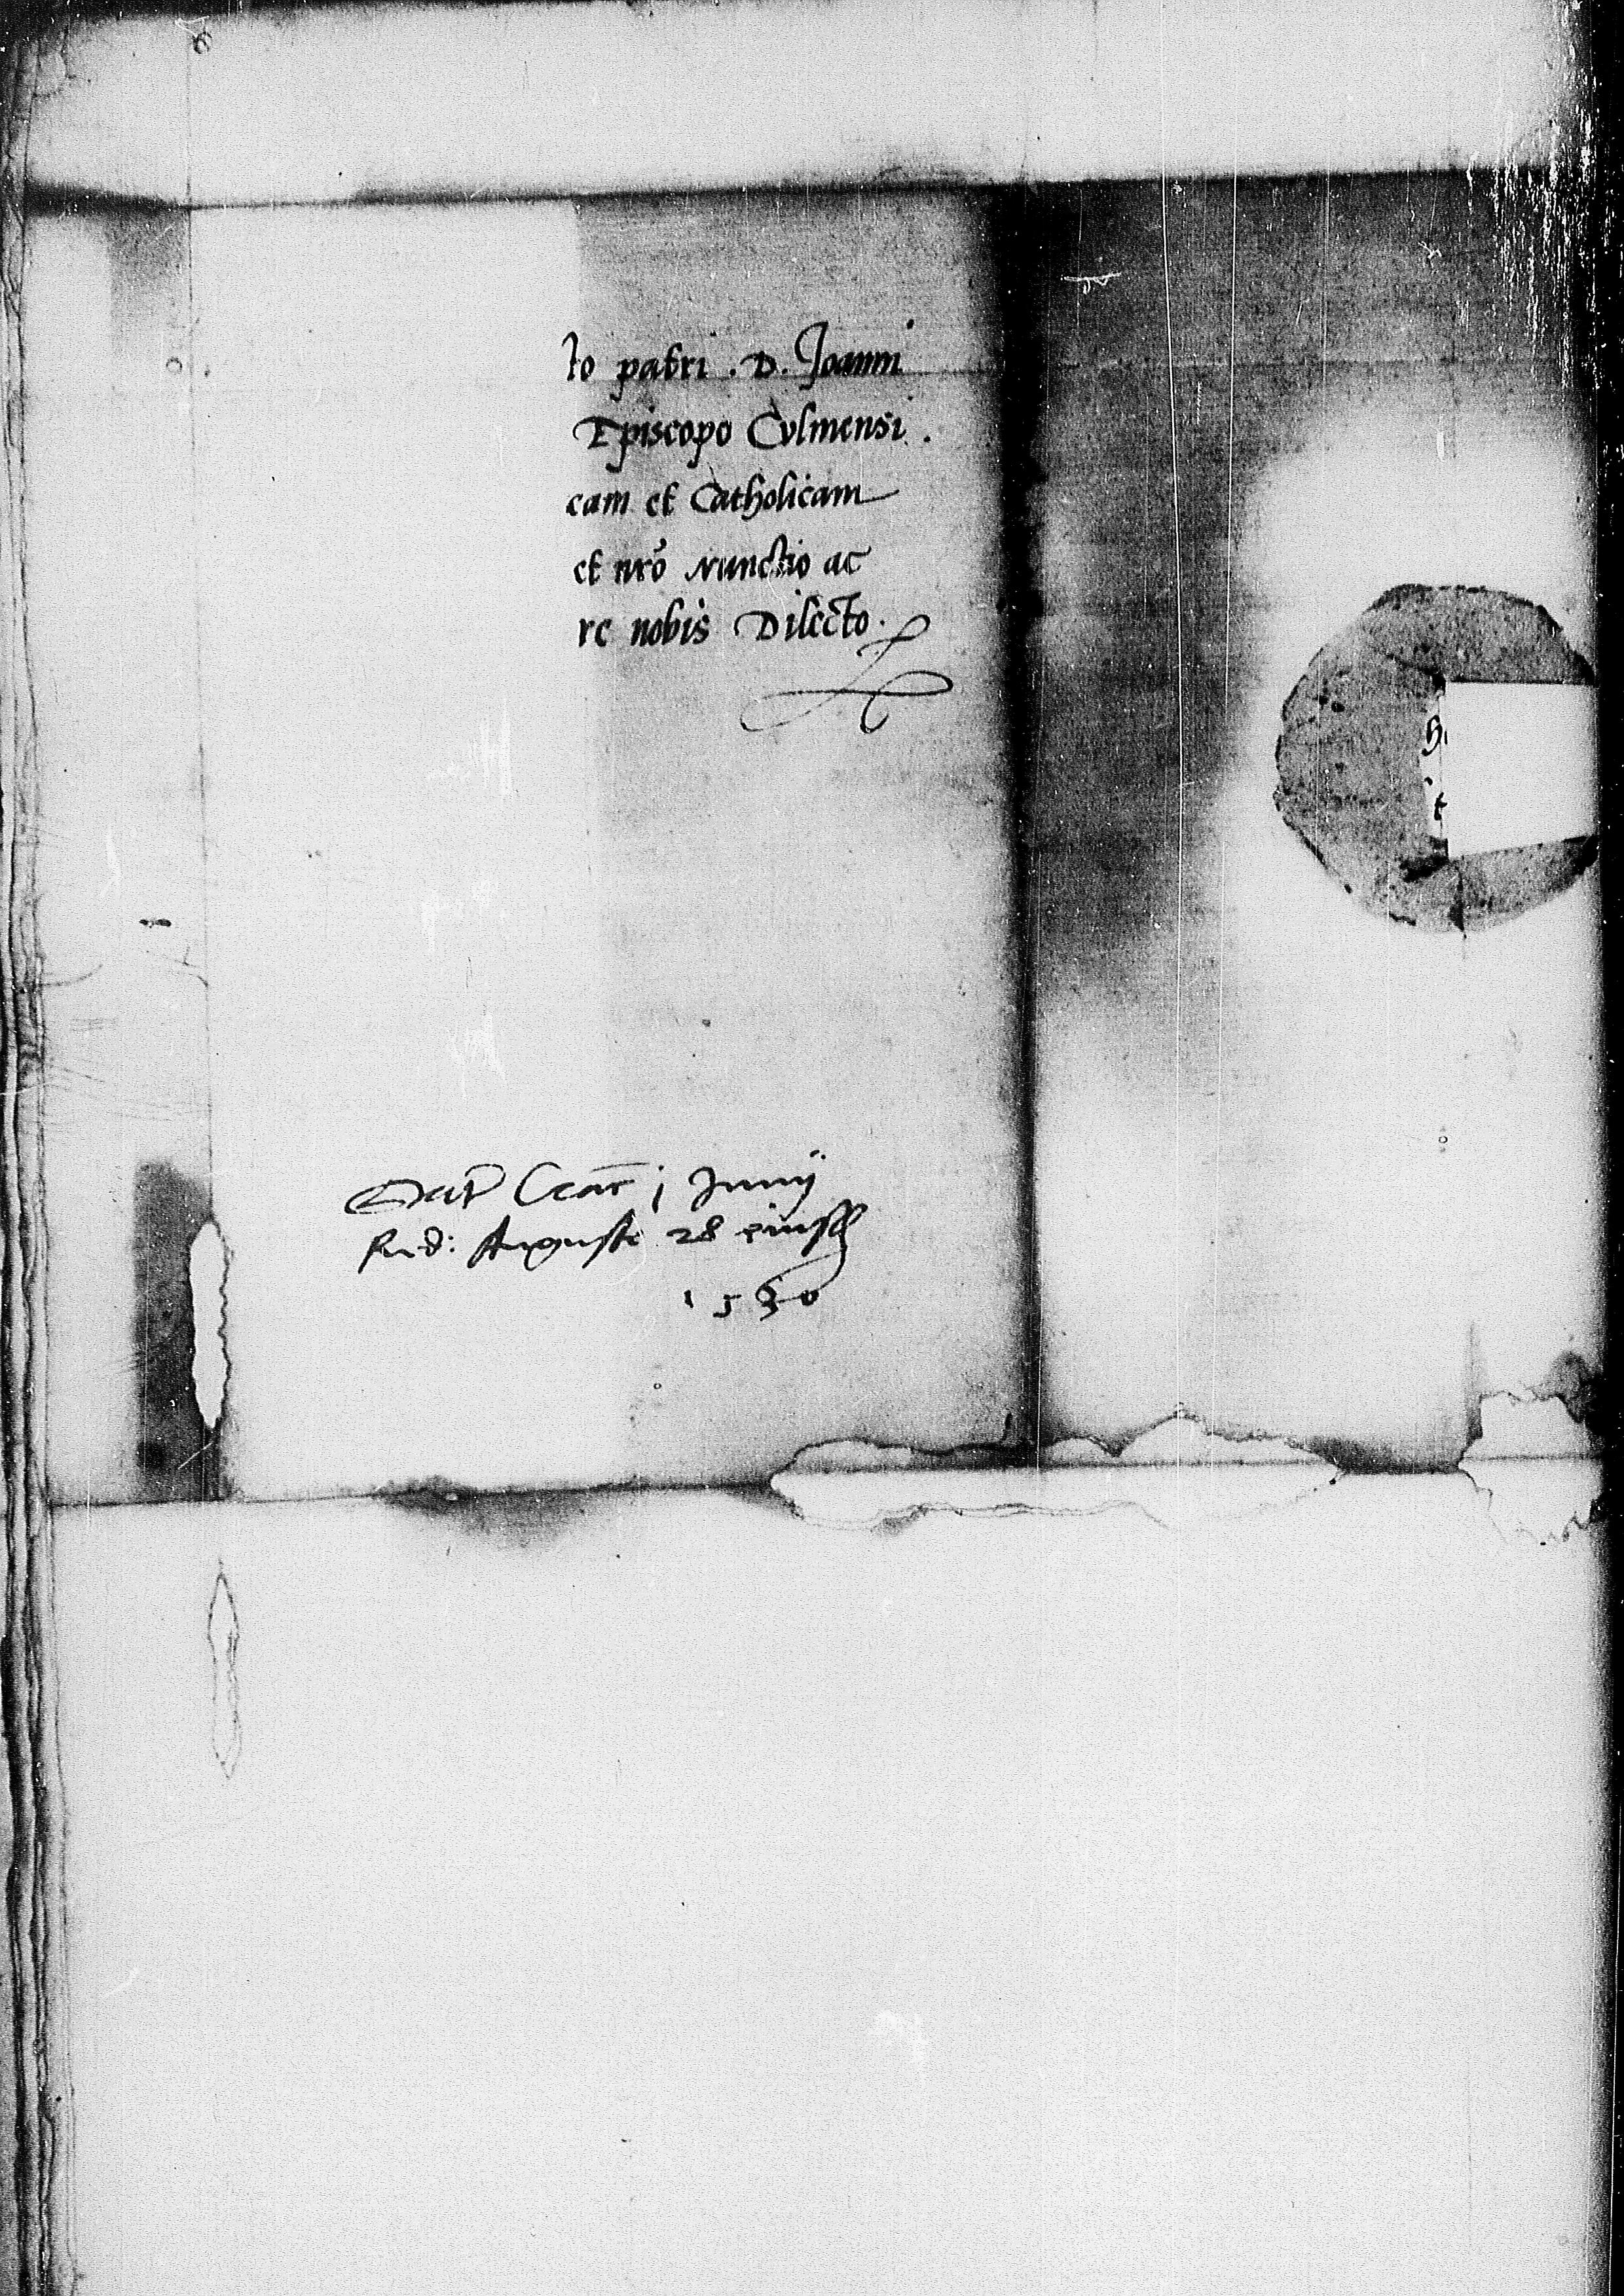 to patri . D. Joanni
Episcopo Cvlmensi .
cam et Catholicam
et nrõ Nunctio ac
re nobis Dilecto .
Dat Crac j Junij
Red: Auguste 28 eiusd
1530